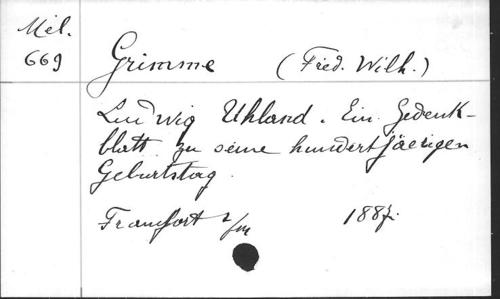 Mél.
669
Grimme (Fred. Wilh.)
Ludwig Uhland. Ein Gedenk-
blatt zu seine hundertjäerigen
Geburtstag.
Francfort s/m 1887.